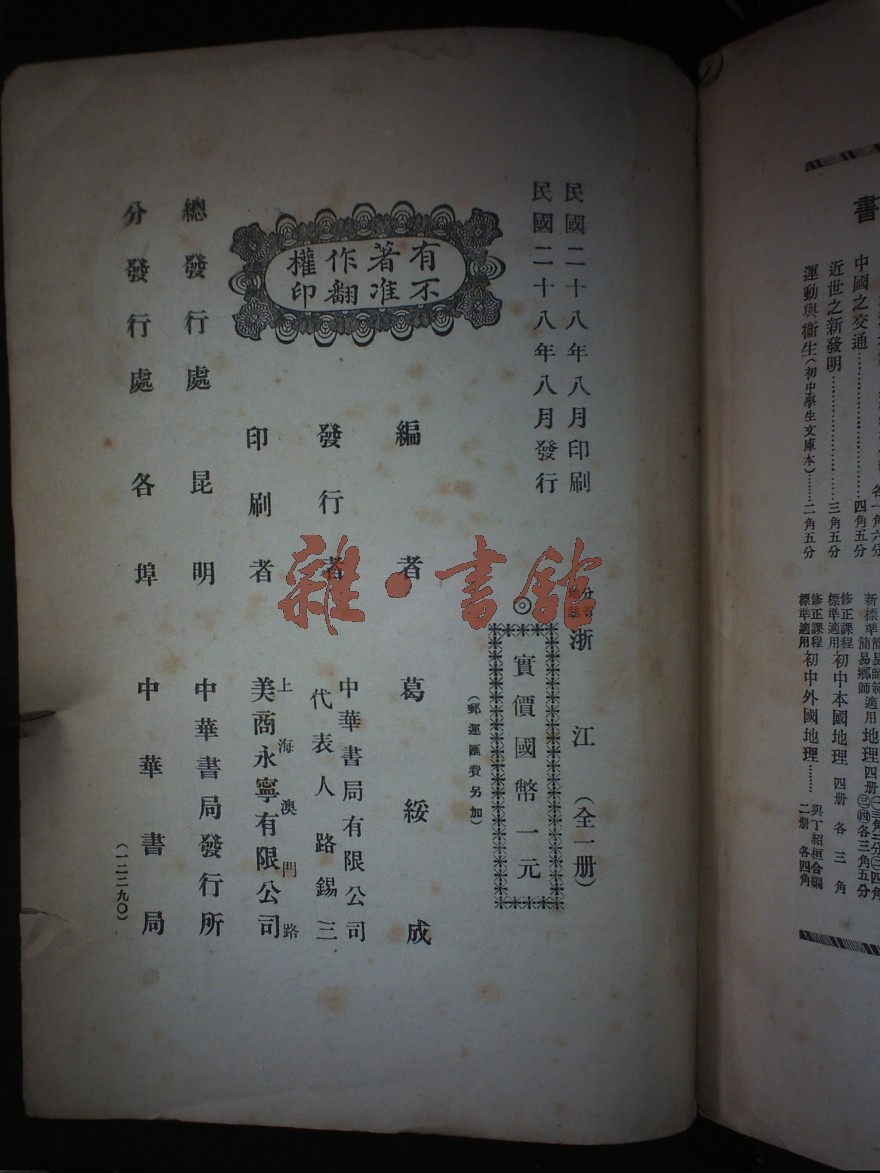 書
中國之交通……………………四角五分
近世之新發明………………三角五分
運動與衞生（初中學生文庫本）……二角五分
新標準適用
簡易師範
簡易鄉師
地理四册
修正課程
標準適用
初中本國地理 四册 各三角
修正課程
標準適用
初中外國地理…… 二册
與丁紹桓合編
各四角
民國二十八年八月印刷
民國二十八年八月發行
分省
地誌
浙江（全一册）
◎實價國幣一元
（郵運匯費另加）
有著作權
不准翻印
編者 葛綏成
發行者 中華書局有限公司
代表人 路錫三
印刷者 上海澳門路
美商永寧有限公司
總發行處 昆明 中華書局發行所
分發行處 各埠 中華書局
（一二二九〇）
雜·書館